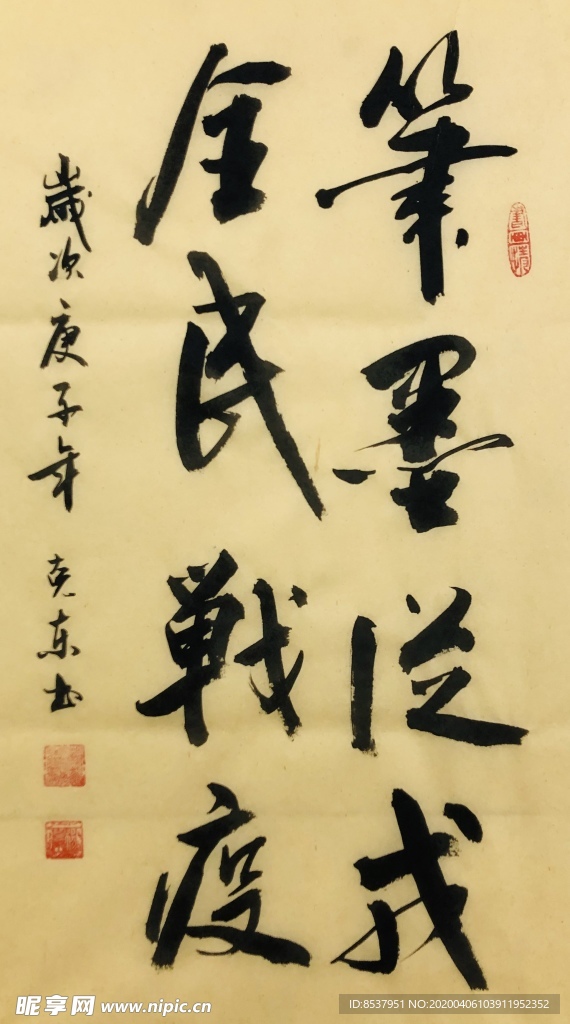 筆墨從戎
全民戰疫
歲次庚子年 克東书
昵享网 www.nipic.cn
ID:8537951 NO:20200406103911952352